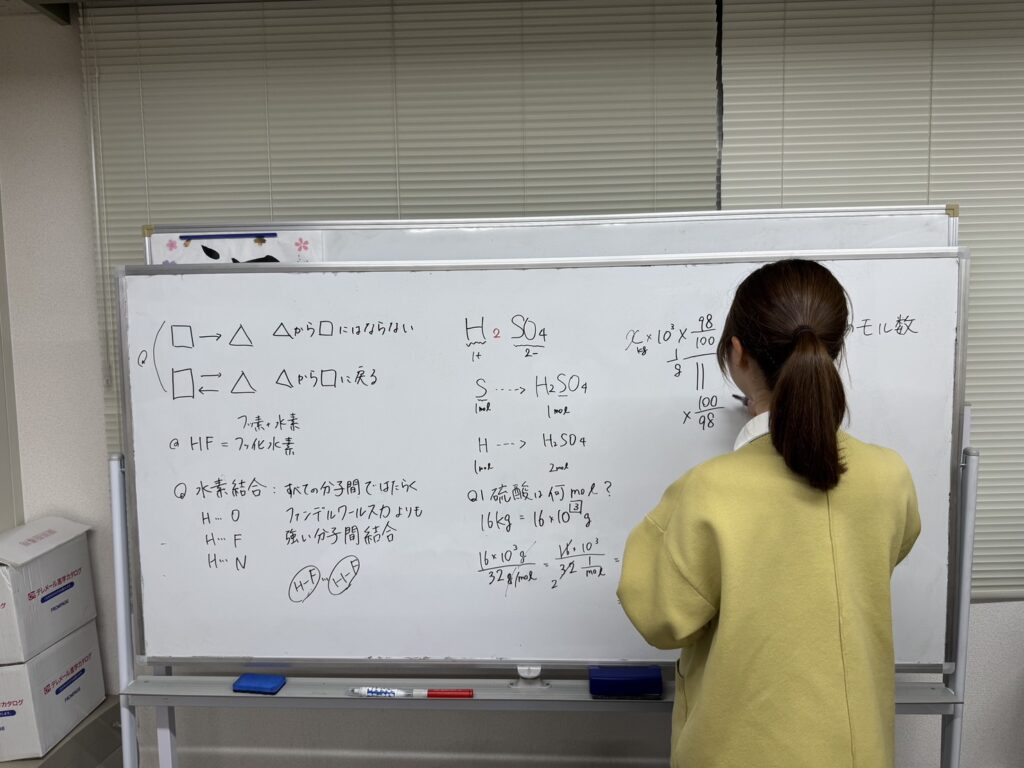 □ → △ △から□にはならない
Q
□ ⇄ △ △から□に戻る
フッ素+水素
@ HF = フッ化水素
Q 水素結合：すべての分子間ではたらく
H…O ファンデルワールス力よりも
H…F 強い分子間結合
H…N
H-F … H-F
H2 SO4
1+ 2-
S ----> H2SO4
1mol 1mol
H ---> H2SO4
1mol 2mol
Q1 硫酸は何mol？
16kg = 16×10[3]g
16×10³g / 32g/mol = 16×10³ / 32 1/mol =
2
x×10³× 98/100
kg
1/g
||
× 100/98
のモル数
テレメール進学カタログ
FROMPAGE
テレメール進学カタログ
FROMPAGE